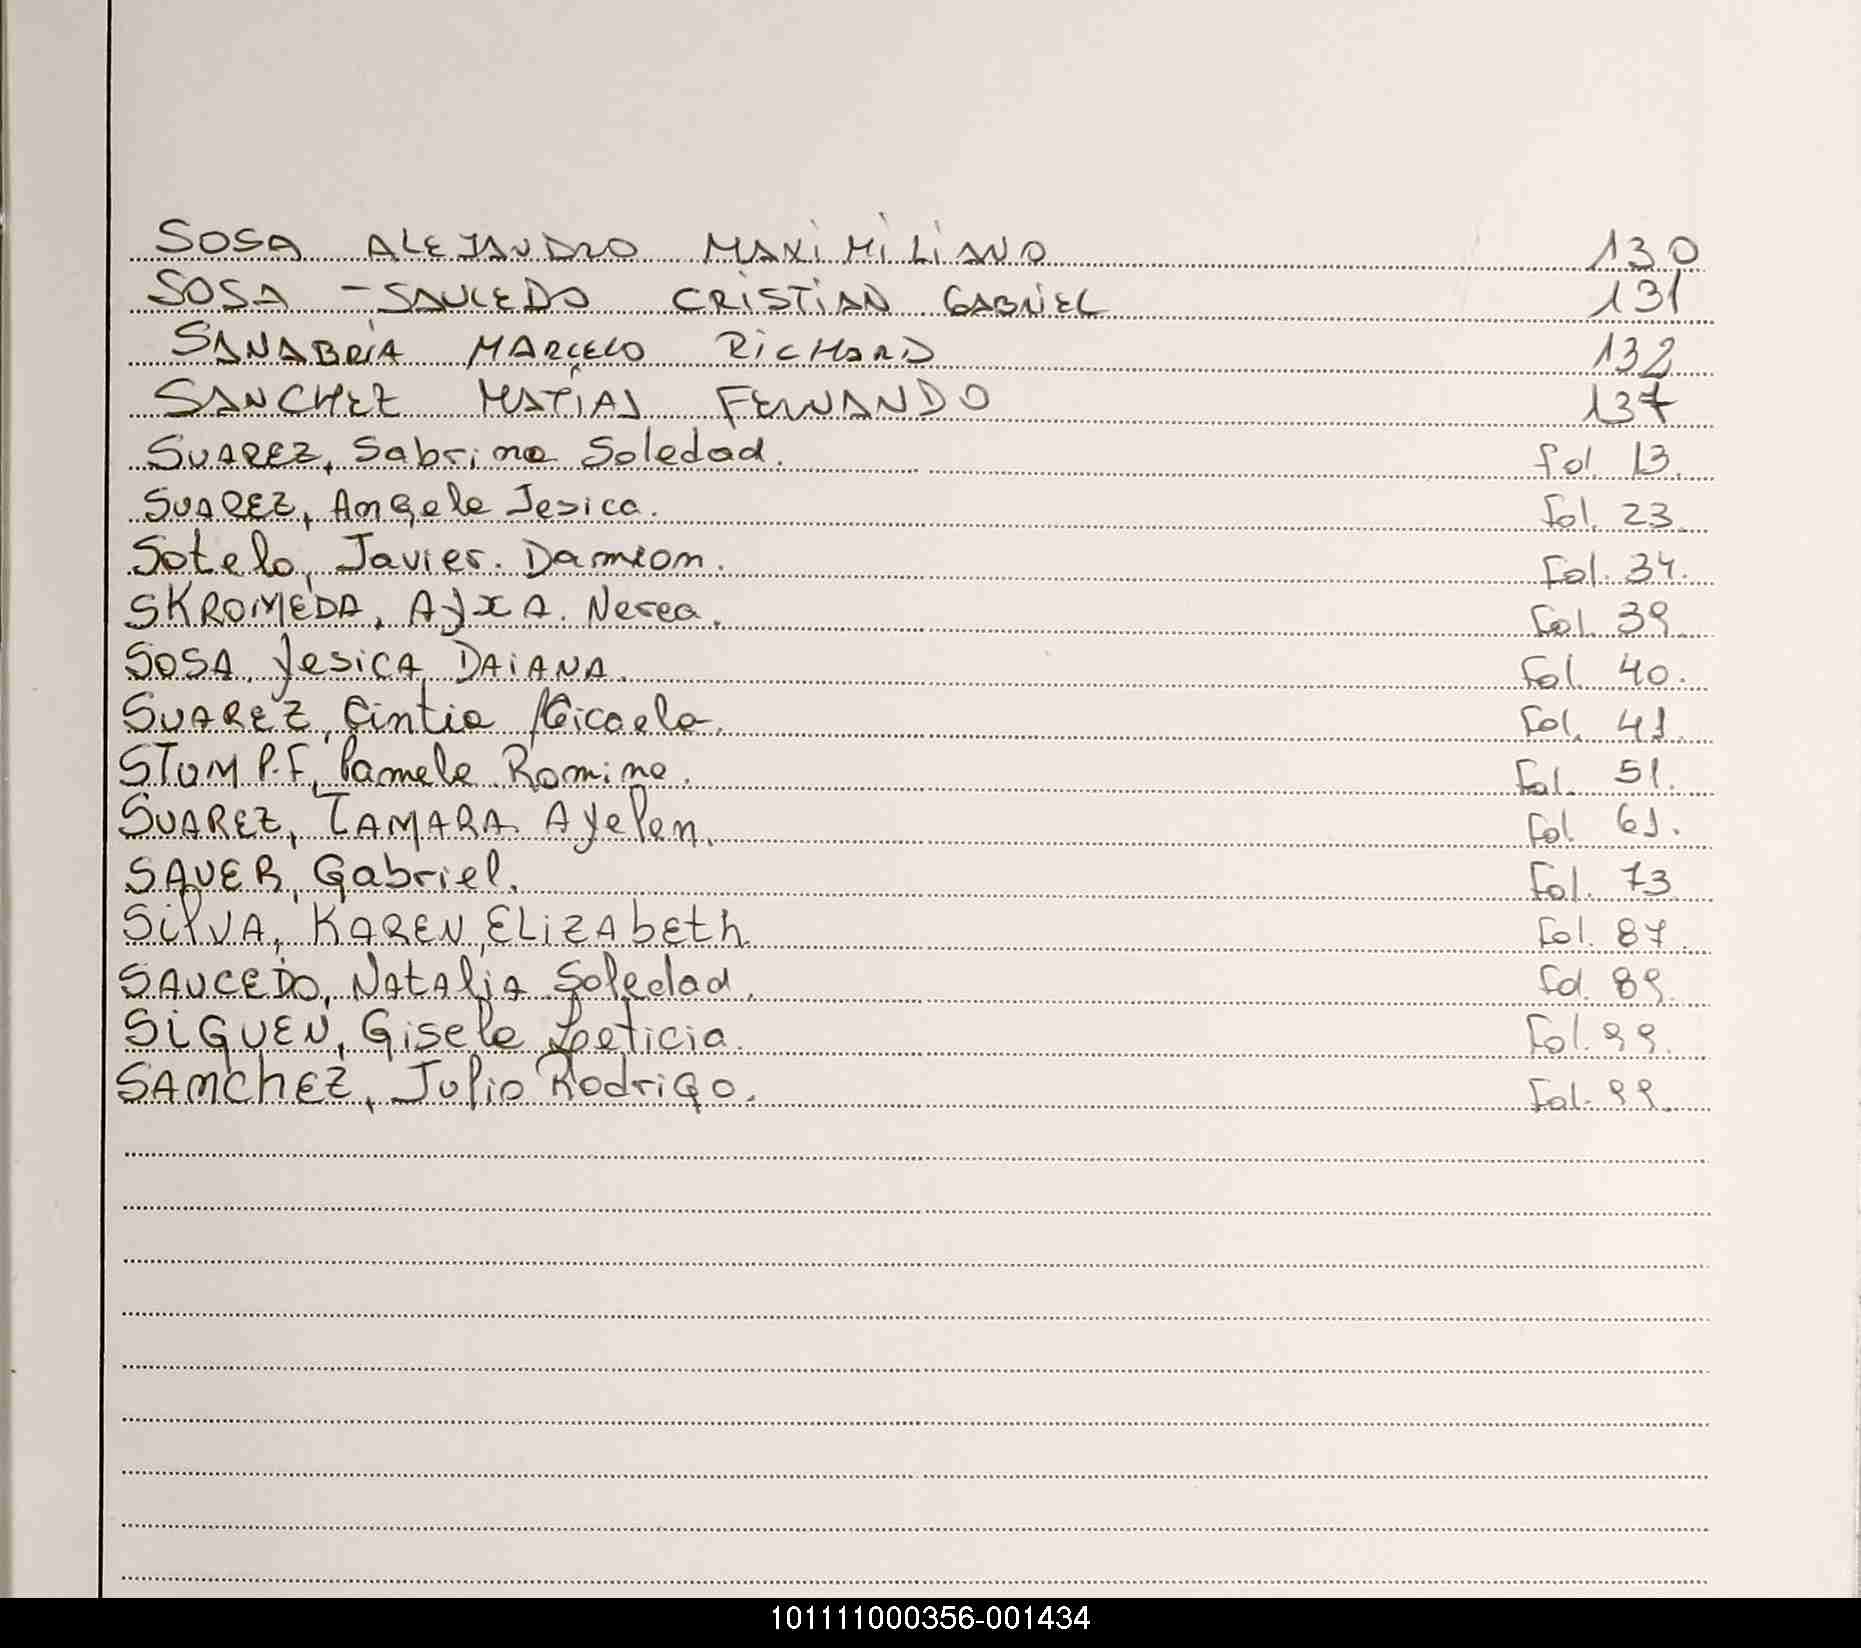 SOSA ALEJANDRO MAXIMILIANO 130
SOSA - SAUCEDO CRISTIAN GABRIEL 131
SANABRIA MARCELO RICHARD 132
SANCHEZ MATIAS FERNANDO 137
SUAREZ, Sabrina Soledad. fol. 13.
SUAREZ, Angela Jesica. fol. 23.
Sotelo, Javier. Damian. fol. 34.
SKROMEDA, Nerea. fol. 39.
SOSA, Jesica DAIANA. fol. 40.
SUAREZ, Cintia Micaela. fol. 41.
STUMPF, Pamela Romina. fol. 51.
SUAREZ, TAMARA Ayelen. fol 61.
SAUER, Gabriel. fol. 73
SilVA, KAREN ELIZAbETh fol. 87.
SAUCEDO, NAtAliA Soledad. fol. 89.
SIGUEN, Gisela Leticia. fol. 99.
SAnchEZ, Julio Rodrigo. fol. 99.
101111000356-001434